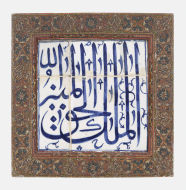 الله
الملك الحق المبين